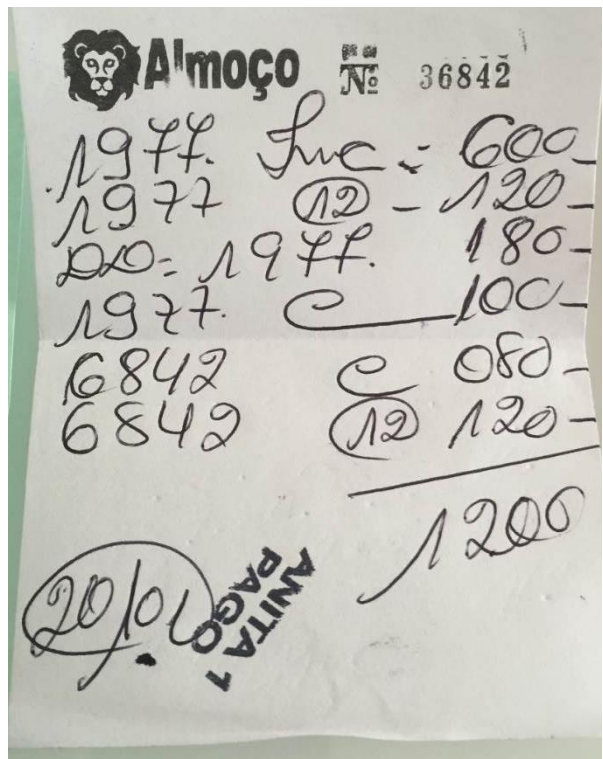 Almoço Nº 36842
1977. = 600-
1977 12 - 120-
DD- 1977. 180-
1977. C 100-
6842 C 080-
6842 12 120-
1200
20/01
ANITA 1
PAGO